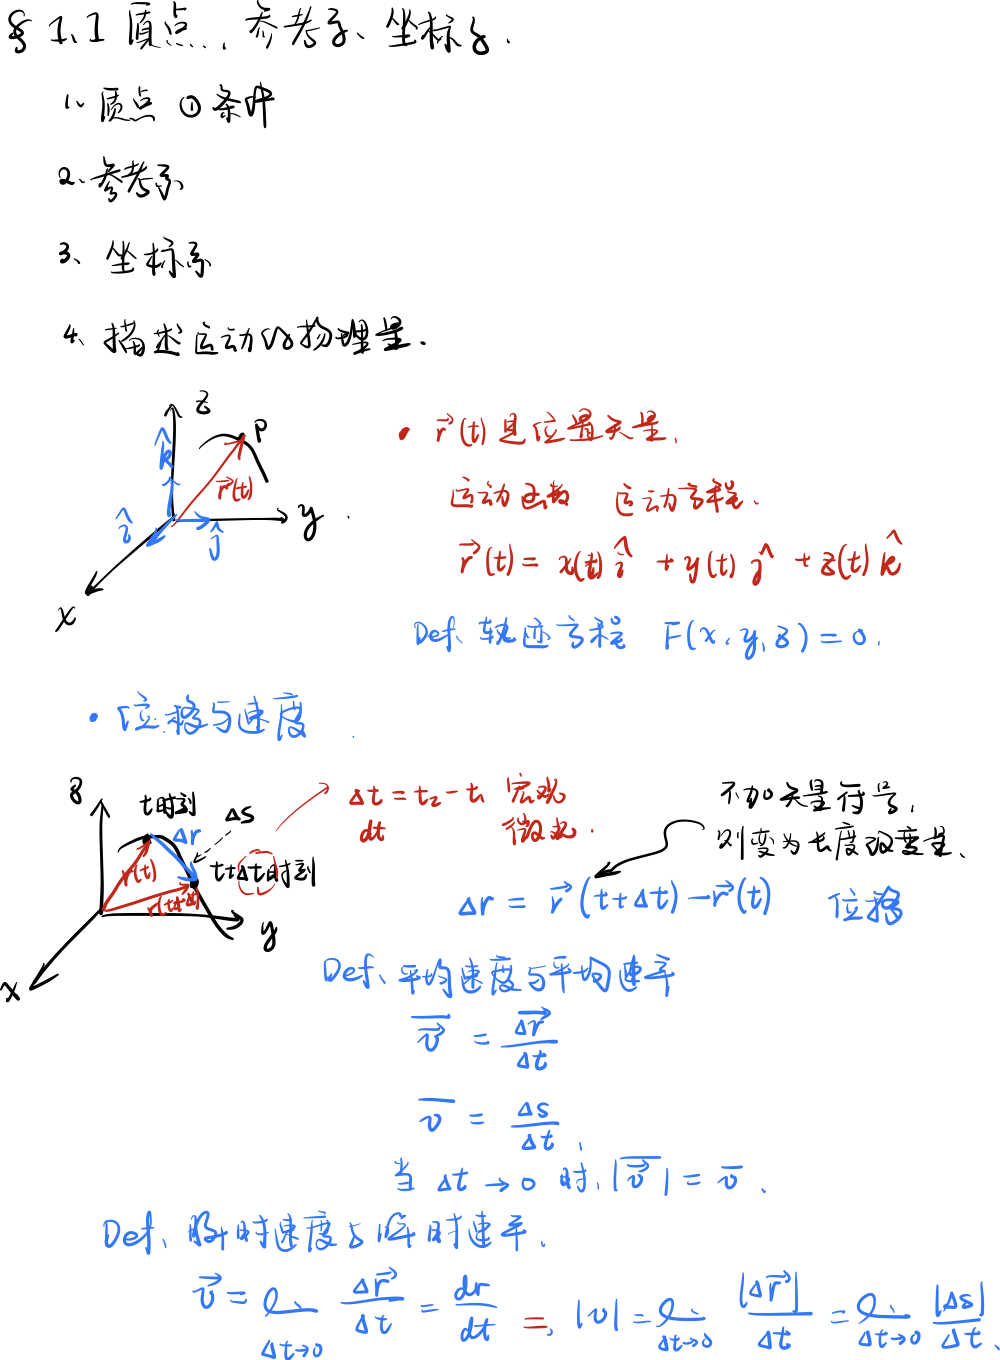 § 1.1 质点、参考系、坐标系.
1、质点 ①条件
2、参考系
3、坐标系
4、描述运动的物理量.
z
P
k̂
r⃗(t)
î
ĵ
y
x
• r⃗(t) 是位置矢量,
运动函数 运动方程.
r⃗(t) = x(t) î + y(t) ĵ + z(t) k̂
Def、轨迹方程 F(x, y, z) = 0.
• 位移与速度
z
t时刻
Δr
Δs
r(t)
t+Δt时刻
r(t+Δt)
y
x
Δt = t₂ - t₁ 宏观
dt 微观.
不加矢量符号,
则变为长度改变量.
Δr = r⃗(t+Δt) - r⃗(t) 位移
Def、平均速度与平均速率
v⃗̅ = Δr⃗/Δt
v̅ = Δs/Δt,
当 Δt → 0 时, |v⃗̅| = v̅.
Def、瞬时速度与瞬时速率.
v⃗ = lim Δt→0 Δr⃗/Δt = dr/dt =, |v| = lim Δt→0 |Δr⃗|/Δt = lim Δt→0 |Δs|/Δt.